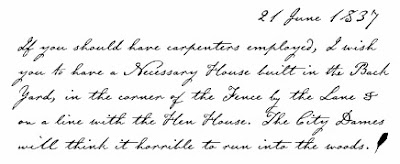 21 June 1837
If you should have carpenters employed, I wish
you to have a Necessary House built in the Back
Yard, in the corner of the Fence by the Lane &
on a line with the Hen House. The City Dames
will think it horrible to run into the woods.